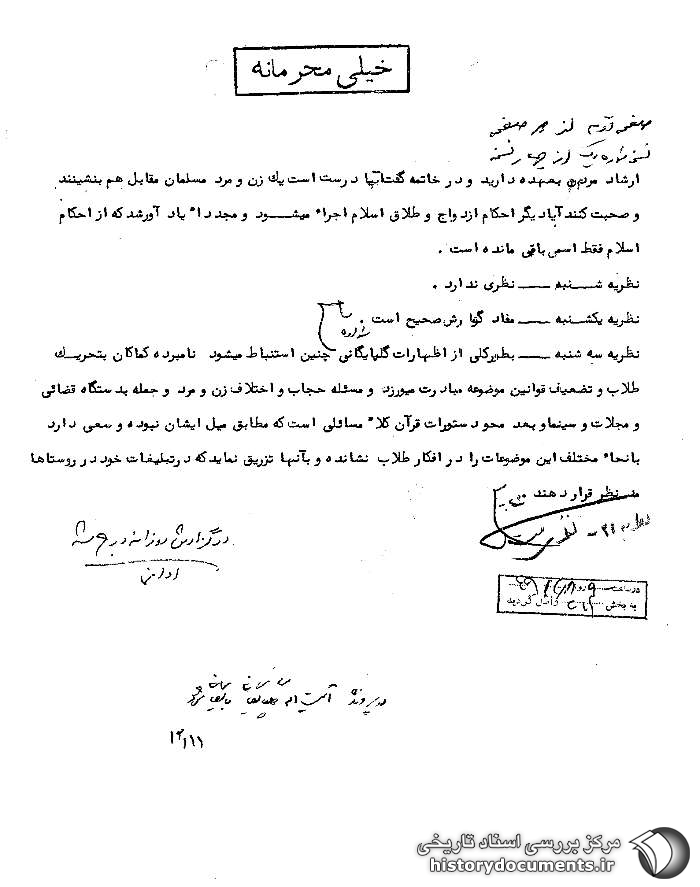 خیلی محرمانه
صفحه دوم از صفحه
نسخه شماره یک از نسخه
ارشاد مردم بعهده دارید و در خاتمه گفت آیا درست است یك زن و مرد مسلمان مقابل هم بنشینند
و صحبت كنند آیا دیگر احكام ازدواج و طلاق اسلام اجراء میشود و مجدداً یاد آور شد كه از احكام
اسلام فقط اسمی باقی مانده است .
نظریه شنبه ــ نظری ندارد .
نظریه یكشنبه ــ مفاد گزارش صحیح است .
نظریه سه شنبه ــ بطور كلی از اظهارات گلپایگانی چنین استنباط میشود نامبرده كماكان بتحریك
طلاب و تضعیف قوانین موضوعه مبادرت میورزد و مسئله حجاب و اختلاف زن و مرد و حمله بدستگاه قضائی
و مجلات و سینما و بعد محو دستورات قرآن كلاً مسائلی است كه مطابق میل ایشان نبوده و سعی دارد
بانحاء مختلف این موضوعات را در افكار طلاب نشانده و بآنها تزریق نماید كه در تبلیغات خود در روستاها
مد نظر قرار دهند
در گزارش روزانه درج شد
در ساعت روز
به بخش ۳۱۲ واصل گردید
در پرونده آیت اله گلپایگانی بایگانی شود
۱۲/۱۱
مرکز بررسی اسناد تاریخی
historydocuments.ir